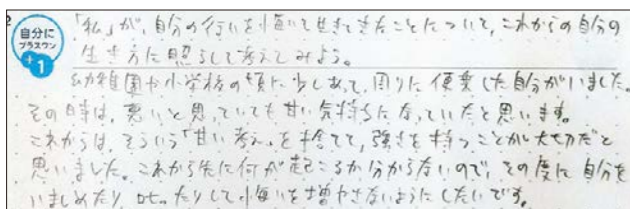 自分に
プラスワン
+1
「私」が、自分の行いを悔いて生きてきたことについて、これからの自分の
生き方に照らして考えてみよう。
幼稚園や小学校の頃に少しあって、周りに便乗した自分がいました。
その時は、悪いと思っていても甘い気持ちになっていたと思います。
これからは、そういう「甘い考え」を捨てて、強さを持つことが大切だと
思いました。これから先に何が起こるか分からないので、その度に自分を
いましめたり、叱ったりして悔いを増やさないようにしたいです。